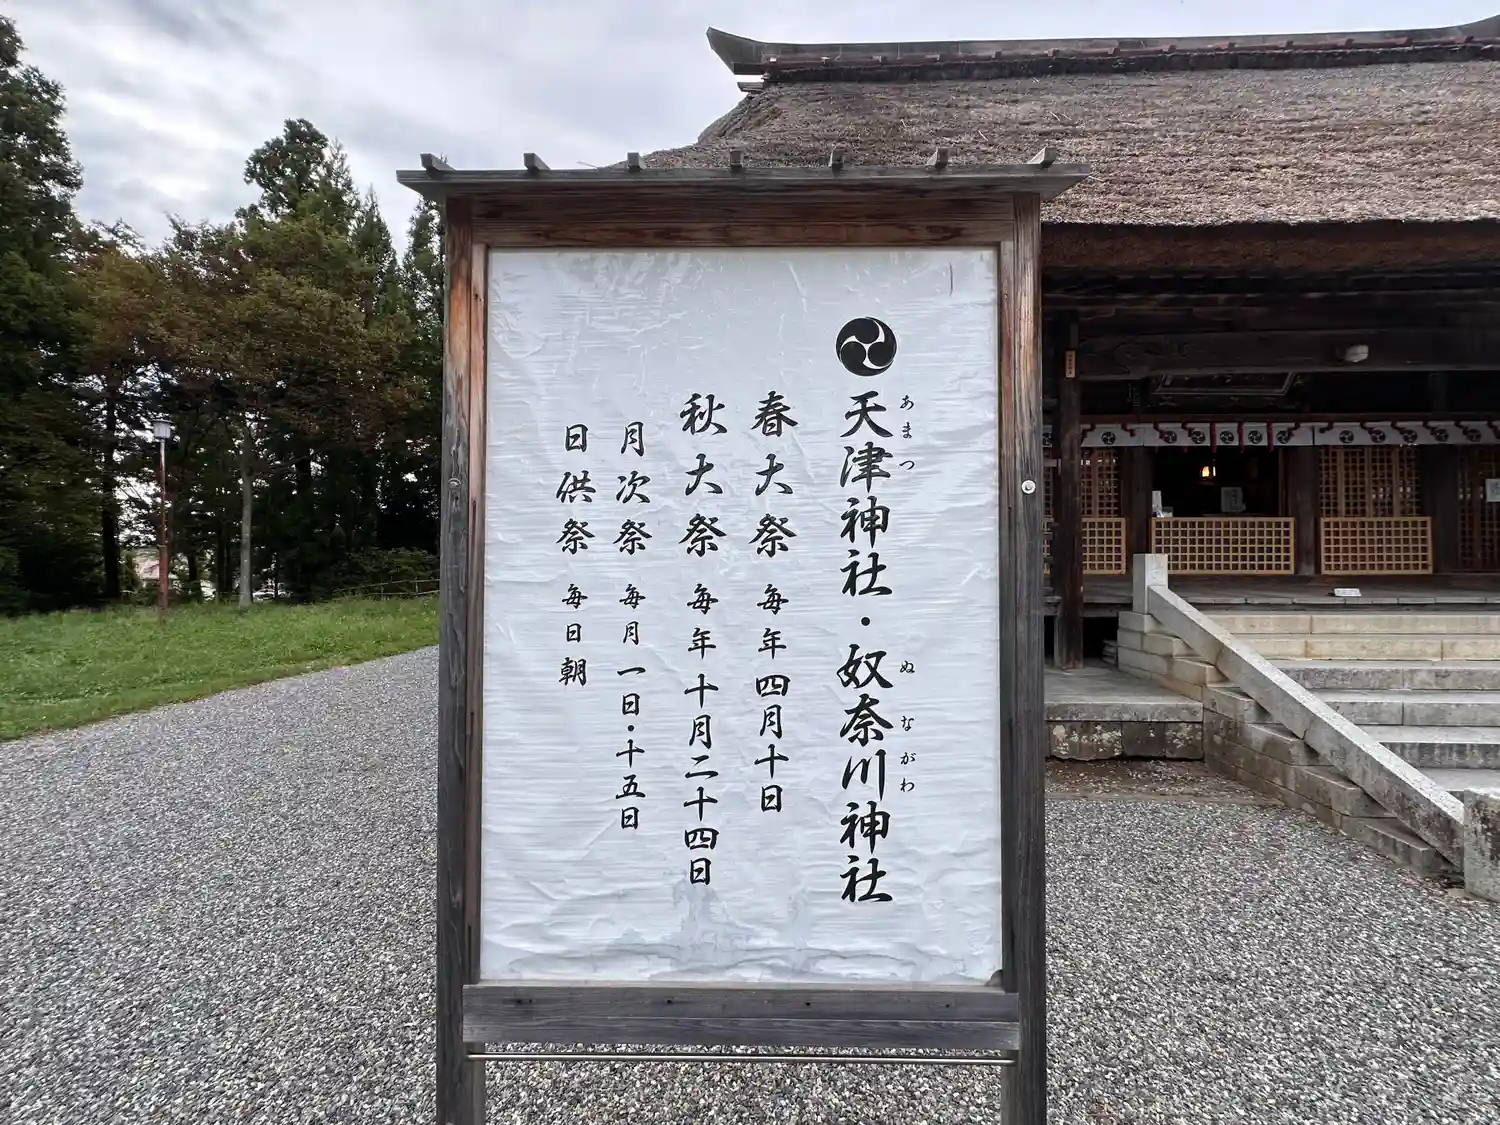 天津神社・奴奈川神社
あまつ
ぬながわ
春大祭 毎年四月十日
秋大祭 毎年十月二十四日
月次祭 毎月一日・十五日
日供祭 毎日朝